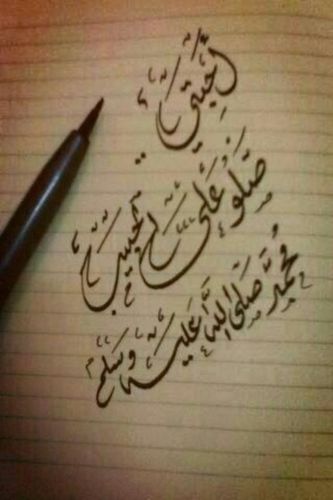 أحبتي ..
صلو على الحبيب
محمد صلى الله عليه وسلم